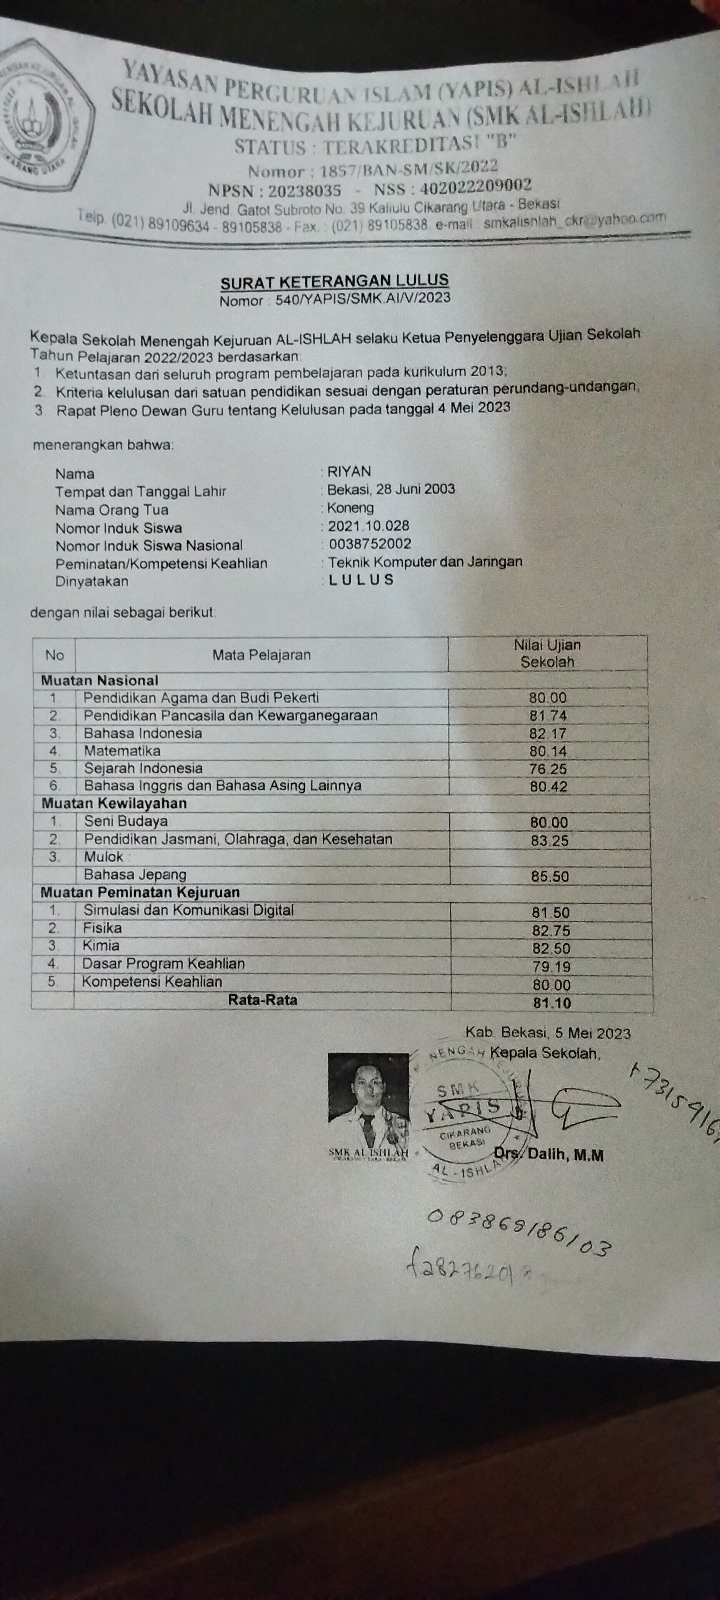 YAYASAN PERGURUAN ISLAM (YAPIS) AL-ISHLAH
SEKOLAH MENENGAH KEJURUAN (SMK AL-ISHLAH)
STATUS : TERAKREDITASI "B"
Nomor : 1857/BAN-SM/SK/2022
NPSN : 20238035 - NSS : 402022209002
Jl. Jend. Gatot Subroto No. 39 Kaliulu Cikarang Utara - Bekasi
Telp. (021) 89109634 - 89105838 - Fax. : (021) 89105838. e-mail : smkalishlah_ckr@yahoo.com
SURAT KETERANGAN LULUS
Nomor : 540/YAPIS/SMK.AI/V/2023
Kepala Sekolah Menengah Kejuruan AL-ISHLAH selaku Ketua Penyelenggara Ujian Sekolah
Tahun Pelajaran 2022/2023 berdasarkan:
1. Ketuntasan dari seluruh program pembelajaran pada kurikulum 2013;
2. Kriteria kelulusan dari satuan pendidikan sesuai dengan peraturan perundang-undangan;
3. Rapat Pleno Dewan Guru tentang Kelulusan pada tanggal 4 Mei 2023
menerangkan bahwa:
Nama : RIYAN
Tempat dan Tanggal Lahir : Bekasi, 28 Juni 2003
Nama Orang Tua : Koneng
Nomor Induk Siswa : 2021.10.028
Nomor Induk Siswa Nasional : 0038752002
Peminatan/Kompetensi Keahlian : Teknik Komputer dan Jaringan
Dinyatakan : L U L U S
dengan nilai sebagai berikut:
No Mata Pelajaran Nilai Ujian Sekolah
Muatan Nasional
1. Pendidikan Agama dan Budi Pekerti 80.00
2. Pendidikan Pancasila dan Kewarganegaraan 81.74
3. Bahasa Indonesia 82.17
4. Matematika 80.14
5. Sejarah Indonesia 76.25
6. Bahasa Inggris dan Bahasa Asing Lainnya 80.42
Muatan Kewilayahan
1. Seni Budaya 80.00
2. Pendidikan Jasmani, Olahraga, dan Kesehatan 83.25
3. Mulok :
Bahasa Jepang 85.50
Muatan Peminatan Kejuruan
1. Simulasi dan Komunikasi Digital 81.50
2. Fisika 82.75
3. Kimia 82.50
4. Dasar Program Keahlian 79.19
5. Kompetensi Keahlian 80.00
Rata-Rata 81.10
Kab. Bekasi, 5 Mei 2023
Kepala Sekolah,
SMK
YAPIS
CIKARANG
BEKASI
AL-ISHLAH
SMK AL ISHLAH
Drs. Dalih, M.M
083869186103